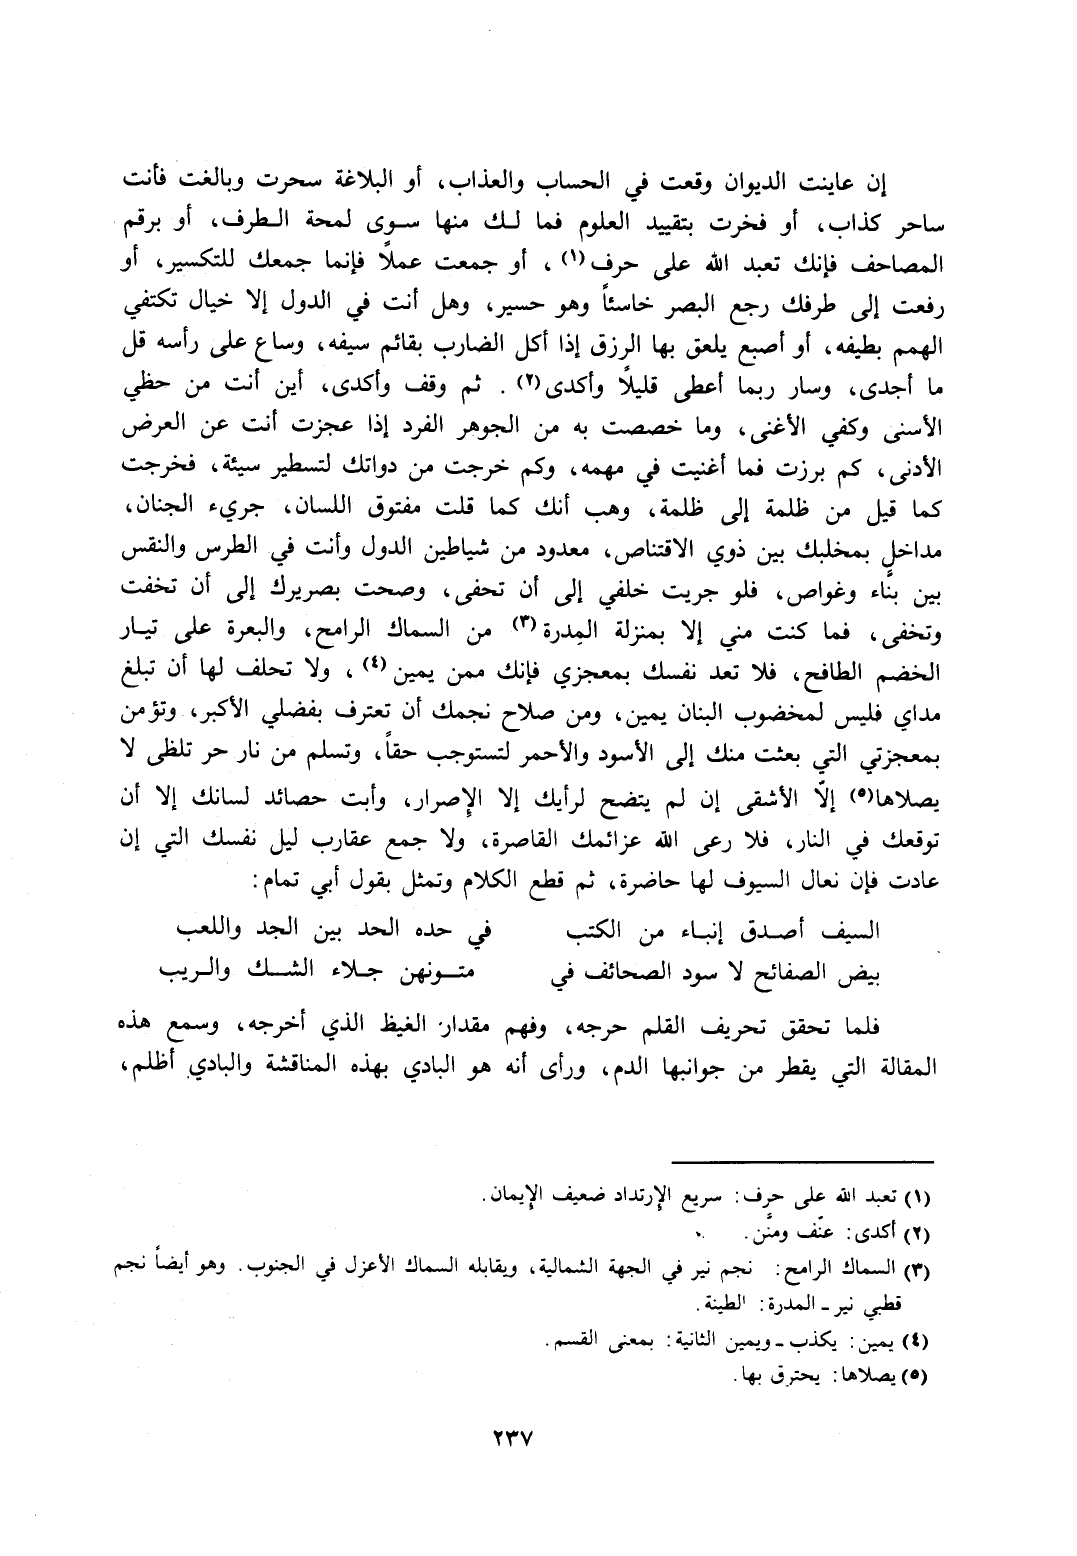 إن عاينت الديوان وقعت في الحساب والعذاب، أو البلاغة سحرت وبالغت فأنت
ساحر كذاب، أو فخرت بتقييد العلوم فما لك منها سوى لمحة الطرف، أو برقم
المصاحف فإنك تعبد الله على حرف(١)، أو جمعت عملاً فإنما جمعك للتكسير، أو
رفعت إلى طرفك رجع البصر خاسئاً وهو حسير، وهل أنت في الدول إلا خيال تكتفي
الهمم بطيفه، أو أصبع يلعق بها الرزق إذا أكل الضارب بقائم سيفه، وساع على رأسه قل
ما أجدى، وسار ربما أعطى قليلاً وأكدى(٢). ثم وقف وأكدى، أين أنت من حظي
الأسنى وكفي الأغنى، وما خصصت به من الجوهر الفرد إذا عجزت أنت عن العرض
الأدنى، كم برزت فما أغنيت في مهمه، وكم خرجت من دواتك لتسطير سيئة، فخرجت
كما قيل من ظلمة إلى ظلمة، وهب أنك كما قلت مفتوق اللسان، جريء الجنان،
مداخلٍ بمخلبك بين ذوي الاقتناص، معدود من شياطين الدول وأنت في الطرس والنقس
بين بنَّاء وغواص، فلو جريت خلفي إلى أن تحفى، وصحت بصريرك إلى أن تخفت
وتخفى، فما كنت مني إلا بمنزلة المِدرة(٣) من السماك الرامح، والبعرة على تيار
الخضم الطافح، فلا تعد نفسك بمعجزي فإنك ممن يمين(٤)، ولا تحلف لها أن تبلغ
مداي فليس لمخضوب البنان يمين، ومن صلاح نجمك أن تعترف بفضلي الأكبر، وتؤمن
بمعجزتي التي بعثت منك إلى الأسود والأحمر لتستوجب حقاً، وتسلم من نار حر تلظى لا
يصلاها(٥) إلّا الأشقى إن لم يتضح لرأيك إلا الإصرار، وأبت حصائد لسانك إلا أن
توقعك في النار، فلا رعى الله عزائمك القاصرة، ولا جمع عقارب ليل نفسك التي إن
عادت فإن نعال السيوف لها حاضرة، ثم قطع الكلام وتمثل بقول أبي تمام:
السيف أصدق إنباء من الكتب في حده الحد بين الجد واللعب
بيض الصفائح لا سود الصحائف في متونهن جلاء الشك والريب
فلما تحقق تحريف القلم حرجه، وفهم مقدار الغيظ الذي أخرجه، وسمع هذه
المقالة التي يقطر من جوانبها الدم، ورأى أنه هو البادي بهذه المناقشة والبادي أظلم،
(١) تعبد الله على حرف: سريع الإرتداد ضعيف الإيمان.
(٢) أكدى: عنّف ومنَّن.
(٣) السماك الرامح: نجم نير في الجهة الشمالية، ويقابله السماك الأعزل في الجنوب. وهو أيضاً نجم
قطبي نير ـ المدرة: الطينة.
(٤) يمين: يكذب ـ ويمين الثانية: بمعنى القسم.
(٥) يصلاها: يحترق بها.
٢٣٧